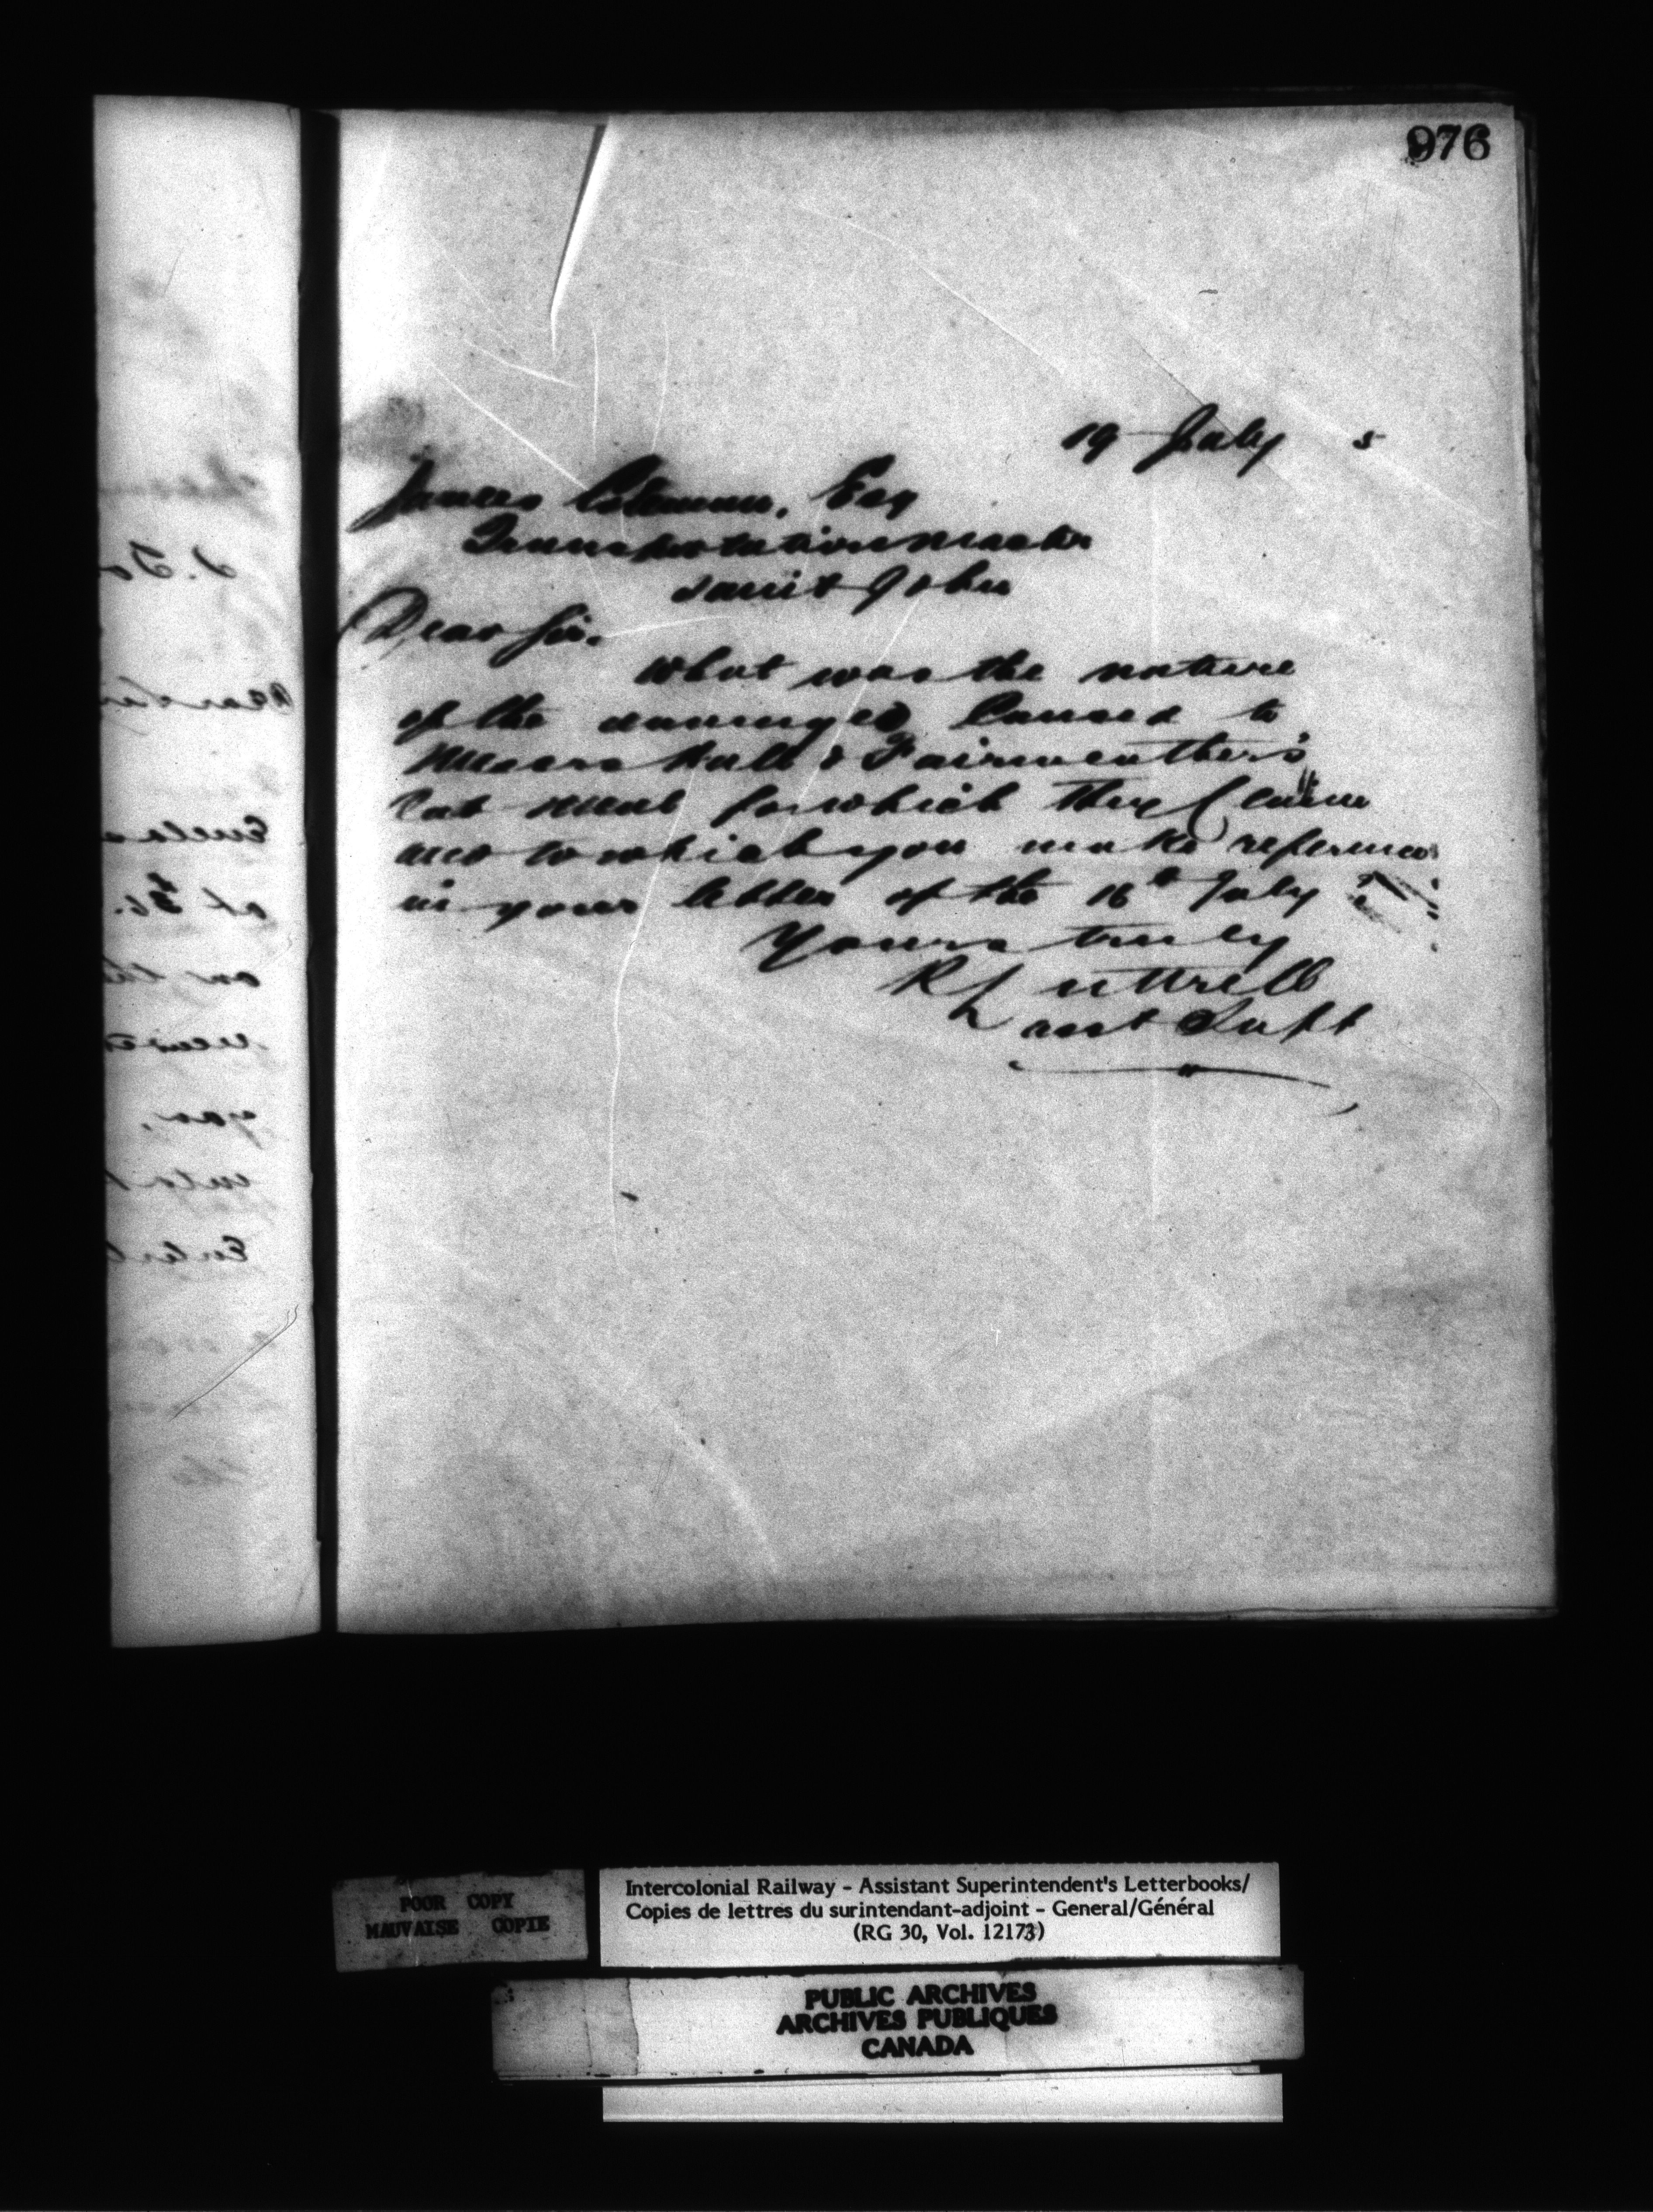 976
19 July 5
James Coleman, Esq
Transportation Master
Saint John
Dear Sir.
What was the nature
of the damaged Caused to
Messrs Hall & Fairweather's
Oat Meal for which they Claim
and to which you make reference
in your letter of the 16th July
Yours truly
R Luttrell
asst Supt
POOR COPY
MAUVAISE COPIE
Intercolonial Railway - Assistant Superintendent's Letterbooks/
Copies de lettres du surintendant-adjoint - General/Général
(RG 30, Vol. 12173)
PUBLIC ARCHIVES
ARCHIVES PUBLIQUES
CANADA